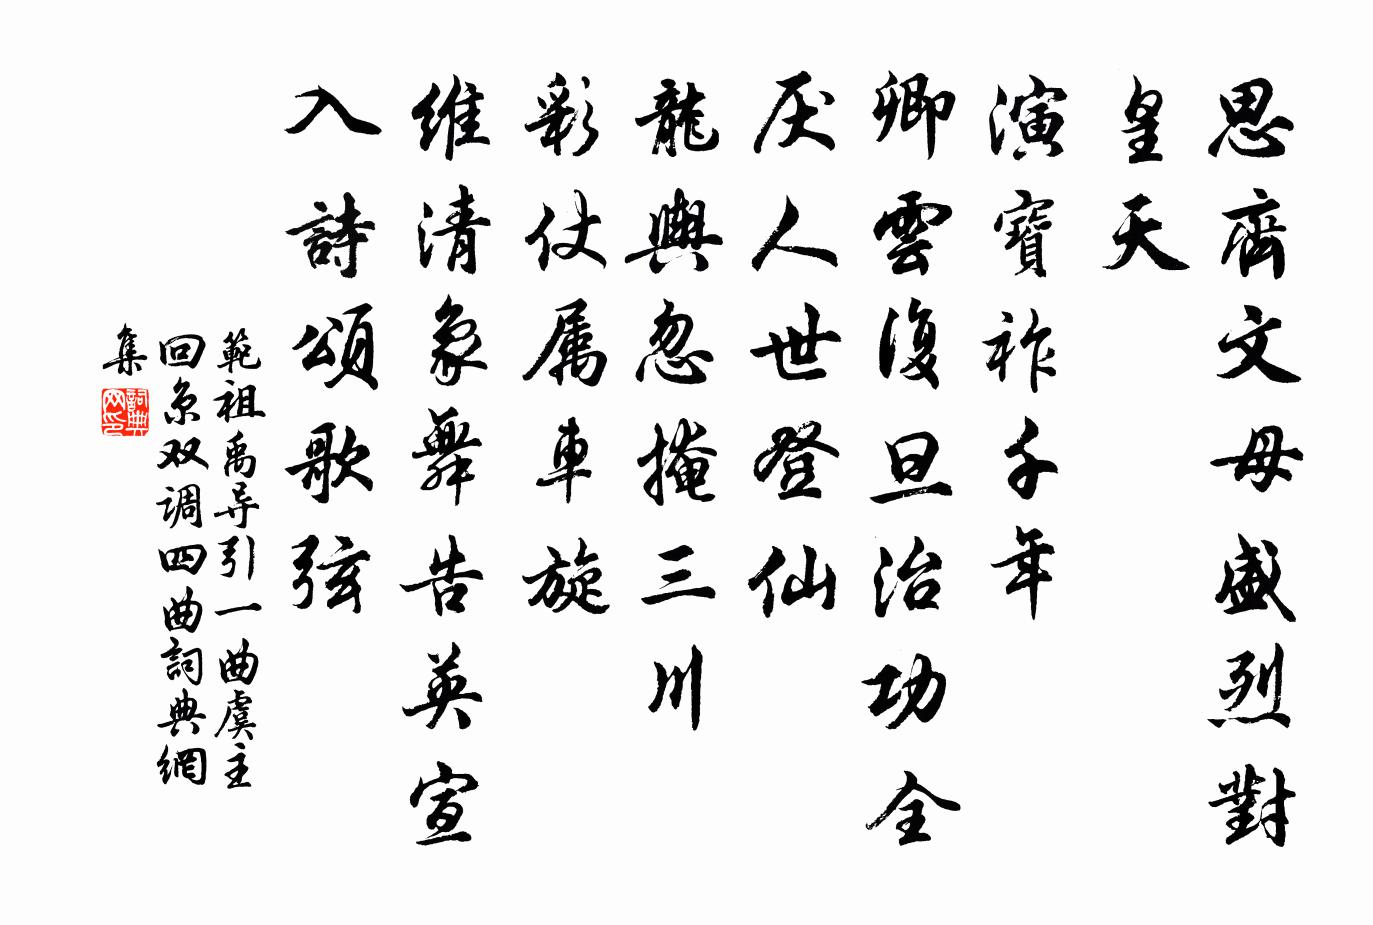 思齊文母盛烈對
皇天
演寶祚千年
卿雲復旦治功全
厌人世登仙
龍輿忽掩三川
彩仗属車旋
維清象舞告英宣
入詩頌歌弦
範祖禹导引一曲虞主
回京双调四曲詞典網
集
詞典
网印